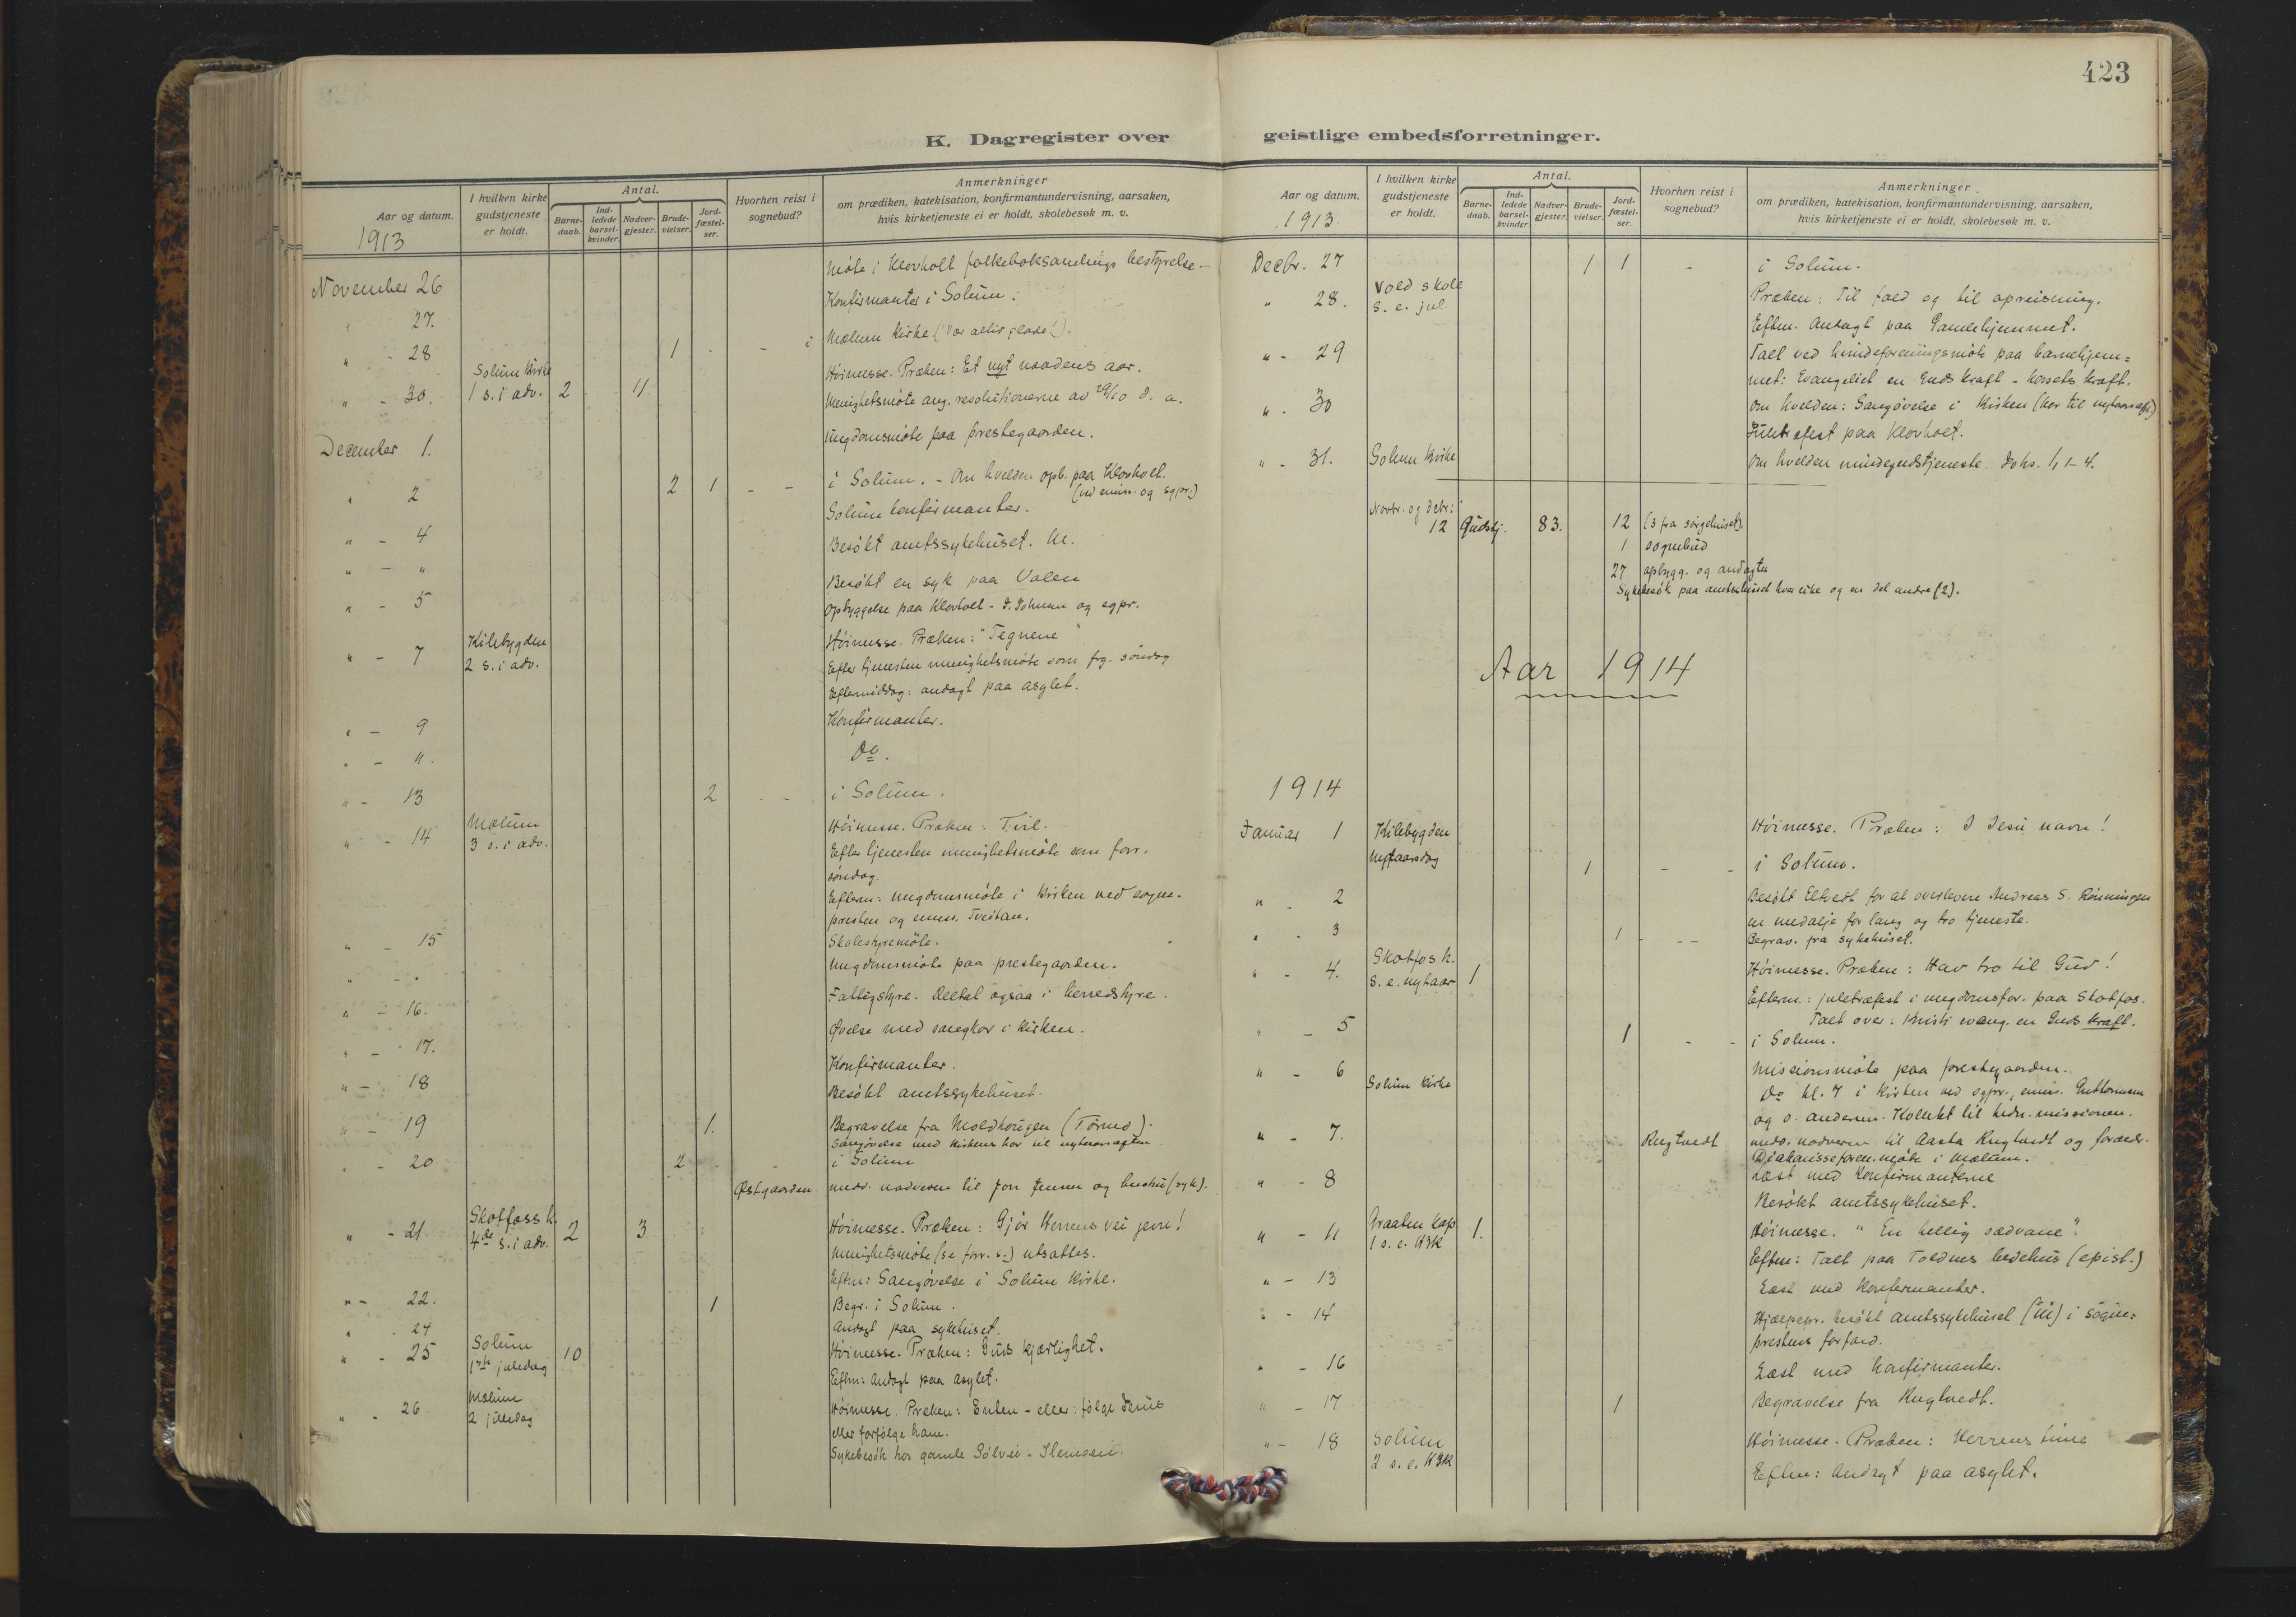 423
K. Dagregister over geistlige embedsforretninger.
Aar og datum.
1913
I hvilken kirke gudstjeneste er holdt.
Antal.
Barne-daab.
Ind-ledede barsel-kvinder.
Nadver-gjester.
Brude-vielser.
Jord-fæstel-ser.
Hvorhen reist i sognebud?
Anmerkninger
om prædiken, katekisation, konfirmantundervisning, aarsaken,
hvis kirketjeneste ei er holdt, skolebesøk m. v.
Møte i Klovholt folkeboksamlings bestyrelse.
November 26 Konfirmanter i Solum.
" 27. Mælum Kirke.
" - 28 1 - - i
Solum Kirke Høimesse. Præken: Et nyt naadens aar.
" - 30. 1 s. i adv. 2 11 Menighetsmøte ang. resolutionerne av 29/10 d. a.
December 1. Ungdomsmøte paa prestegaarden.
" 2 2 1 - - i Solum. - Om kvelden opb. paa Klovholt.
(ved emiss. og sgpr.)
Solum konfirmanter.
" - 4 Besøkt amtssykehuset.
" - " Besøkt en syk paa Valen
" - 5 Opbyggelse paa Klovholt - og sgpr.
Kilebygden Høimesse. Præken: "Tegnene"
" - 7 2 s. i adv. Efter tjenesten menighetsmøte som frg. søndag
Eftermiddag: andagt paa asylet.
" - 9 Konfirmanter.
" - 11. Do.
" - 13 2 - - i Solum.
Mælum Høimesse. Præken: Tvil.
" - 14 3 s. i adv. Efter tjenesten menighetsmøte som forr.
søndag.
Efterm: ungdomsmøte i Kirken ved sogne-
presten og emiss. Tveitan.
" - 15 Skolestyremøte.
" - " Ungdomsmøte paa prestegaarden.
" - 16. Fattigstyre. Deltat ogsaa i herredstyre.
" - 17. Øvelse med sangkor i Kirken.
" - 18 Konfirmanter.
Besøkt amtssykehuset.
" - 19 1. Begravelse fra Moldhougen
Sangøvelse med Kirkens kor til nytaarsaften.
" - 20 2 - - i Solum
Østgaarden medd. nadveren til Jon Jensen og hustru (syk).
Skotfoss k.
" - 21 4de s. i adv. 2 3 Høimesse. Præken: Gjør Herrens vei jevn!
Menighetsmøte (se forr. s.) utsattes.
Eftm: Sangøvelse i Solum Kirke.
" - 22. 1 Begr. i Solum.
" - 24 Andagt paa sykehuset.
Solum
" - 25 1ste juledag 10 Høimesse. Præken: Guds kjærlighet.
Eftm: Andagt paa asylet.
Mælum
" - 26 2 juledag Høimesse. Præken: Enten - eller: følge Jesus
eller forfølge ham.
Sykebesøk hos gamle Sølvei -
Aar og datum.
1913.
I hvilken kirke gudstjeneste er holdt.
Antal.
Barne-daab.
Ind-ledede barsel-kvinder
Nadver-gjester.
Brude-vielser.
Jord-fæstel-ser.
Hvorhen reist i sognebud?
Anmerkninger
om prædiken, katekisation, konfirmantundervisning, aarsaken,
hvis kirketjeneste ei er holdt, skolebesøk m. v.
Decbr. 27 1 1 - i Solum.
Vold skole
" 28. S. e. jul Præken: Til fald og til opreisning.
Eftm. Andagt paa Gamlehjemmet.
" - 29 Talt ved kvindeforeningsmøte paa barnehjem=
met: Evangeliet en Guds kraft - korsets kraft.
" - 30 Om kvelden: Sangøvelse i Kirken (kor til nytaarsaft.)
Juletræfest paa Klovholt.
" - 31. Solum Kirke Om kvelden mindegudstjeneste. Johs. 1, 1-4.
Novbr. og Dcbr:
12 Gudstj. 83. 12 (3 fra sørgehuset).
1 sognebud
27 opbygg. og andagter
Sykebesøk paa amtssykehuset hver uke og en del andre (2).
Aar 1914
1914
Januar 1 Kilebygden Høimesse. Præken: I Jesu navn!
Nytaarsdag 1 - - i Solum.
" - 2 Besøkt Eltvedt for at overlevere Andreas S. Rønningen
en medalje for lang og tro tjeneste.
" - 3 1 - - - Begrav. fra sykehuset.
Skotfos k.
" - 4. S. e. nytaar 1 Høimesse. Præken: Hav tro til Gud!
Efterm: juletræfest i ungdomsfor. paa Skotfos.
Talt over: Kristi evang. en Guds kraft.
" - 5 1 - - i Solum.
" - 6 Missionsmøte paa prestegaarden.
Solum Kirke Do kl. 7 i Kirken ved sgpr., emiss. Guttormsen
og o. andersen. Kollekt til hedn. missionen.
" - 7. Rugtvedt medd. nadveren til Aasta Rugtvedt og forældr.
Diakonisseforen. møte i Mælum.
" - 8 Læst med Konfirmanterne
Besøkt amtssykehuset.
Graaten kap
" - 11 1 s. e. H3K 1. Høimesse. "En hellig sædvane".
Eftm: Talt paa Toldnes bedehus (epist.)
" - 13 Læst med Konfirmanter.
" - 14 Hjælpepr. besøkt amtssykehuset i sogne=
prestens forfald.
" - 16 Læst med konfirmanter.
" - 17 1 Begravelse fra Rugtvedt.
" - 18 Solum Høimesse. Præken: Herrens time
2 s. e. H3K Eftm: Andagt paa asylet.